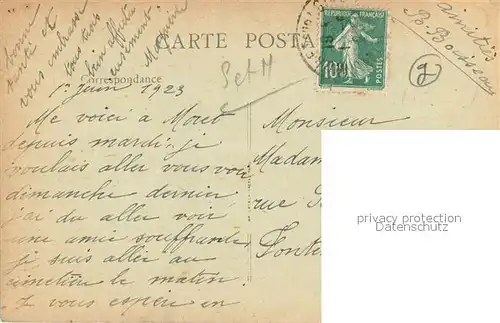 CARTE POSTALE
Correspondance
1er Juin 1923
Me voici à Moret
depuis mardi, je
voulais aller vous voir
dimanche dernier
j'ai du aller voir
une amie souffrante
je suis aller au
cimetière le matin.
Je vous espère en
bonne
santé et
vous embrasse
tous trois
bien affectu
eusement
S et M
RÉPUBLIQUE FRANÇAISE
10c
POSTES
amitiés
2
Monsieur
Madam
rue
Fonte
privacy protection
Datenschutz